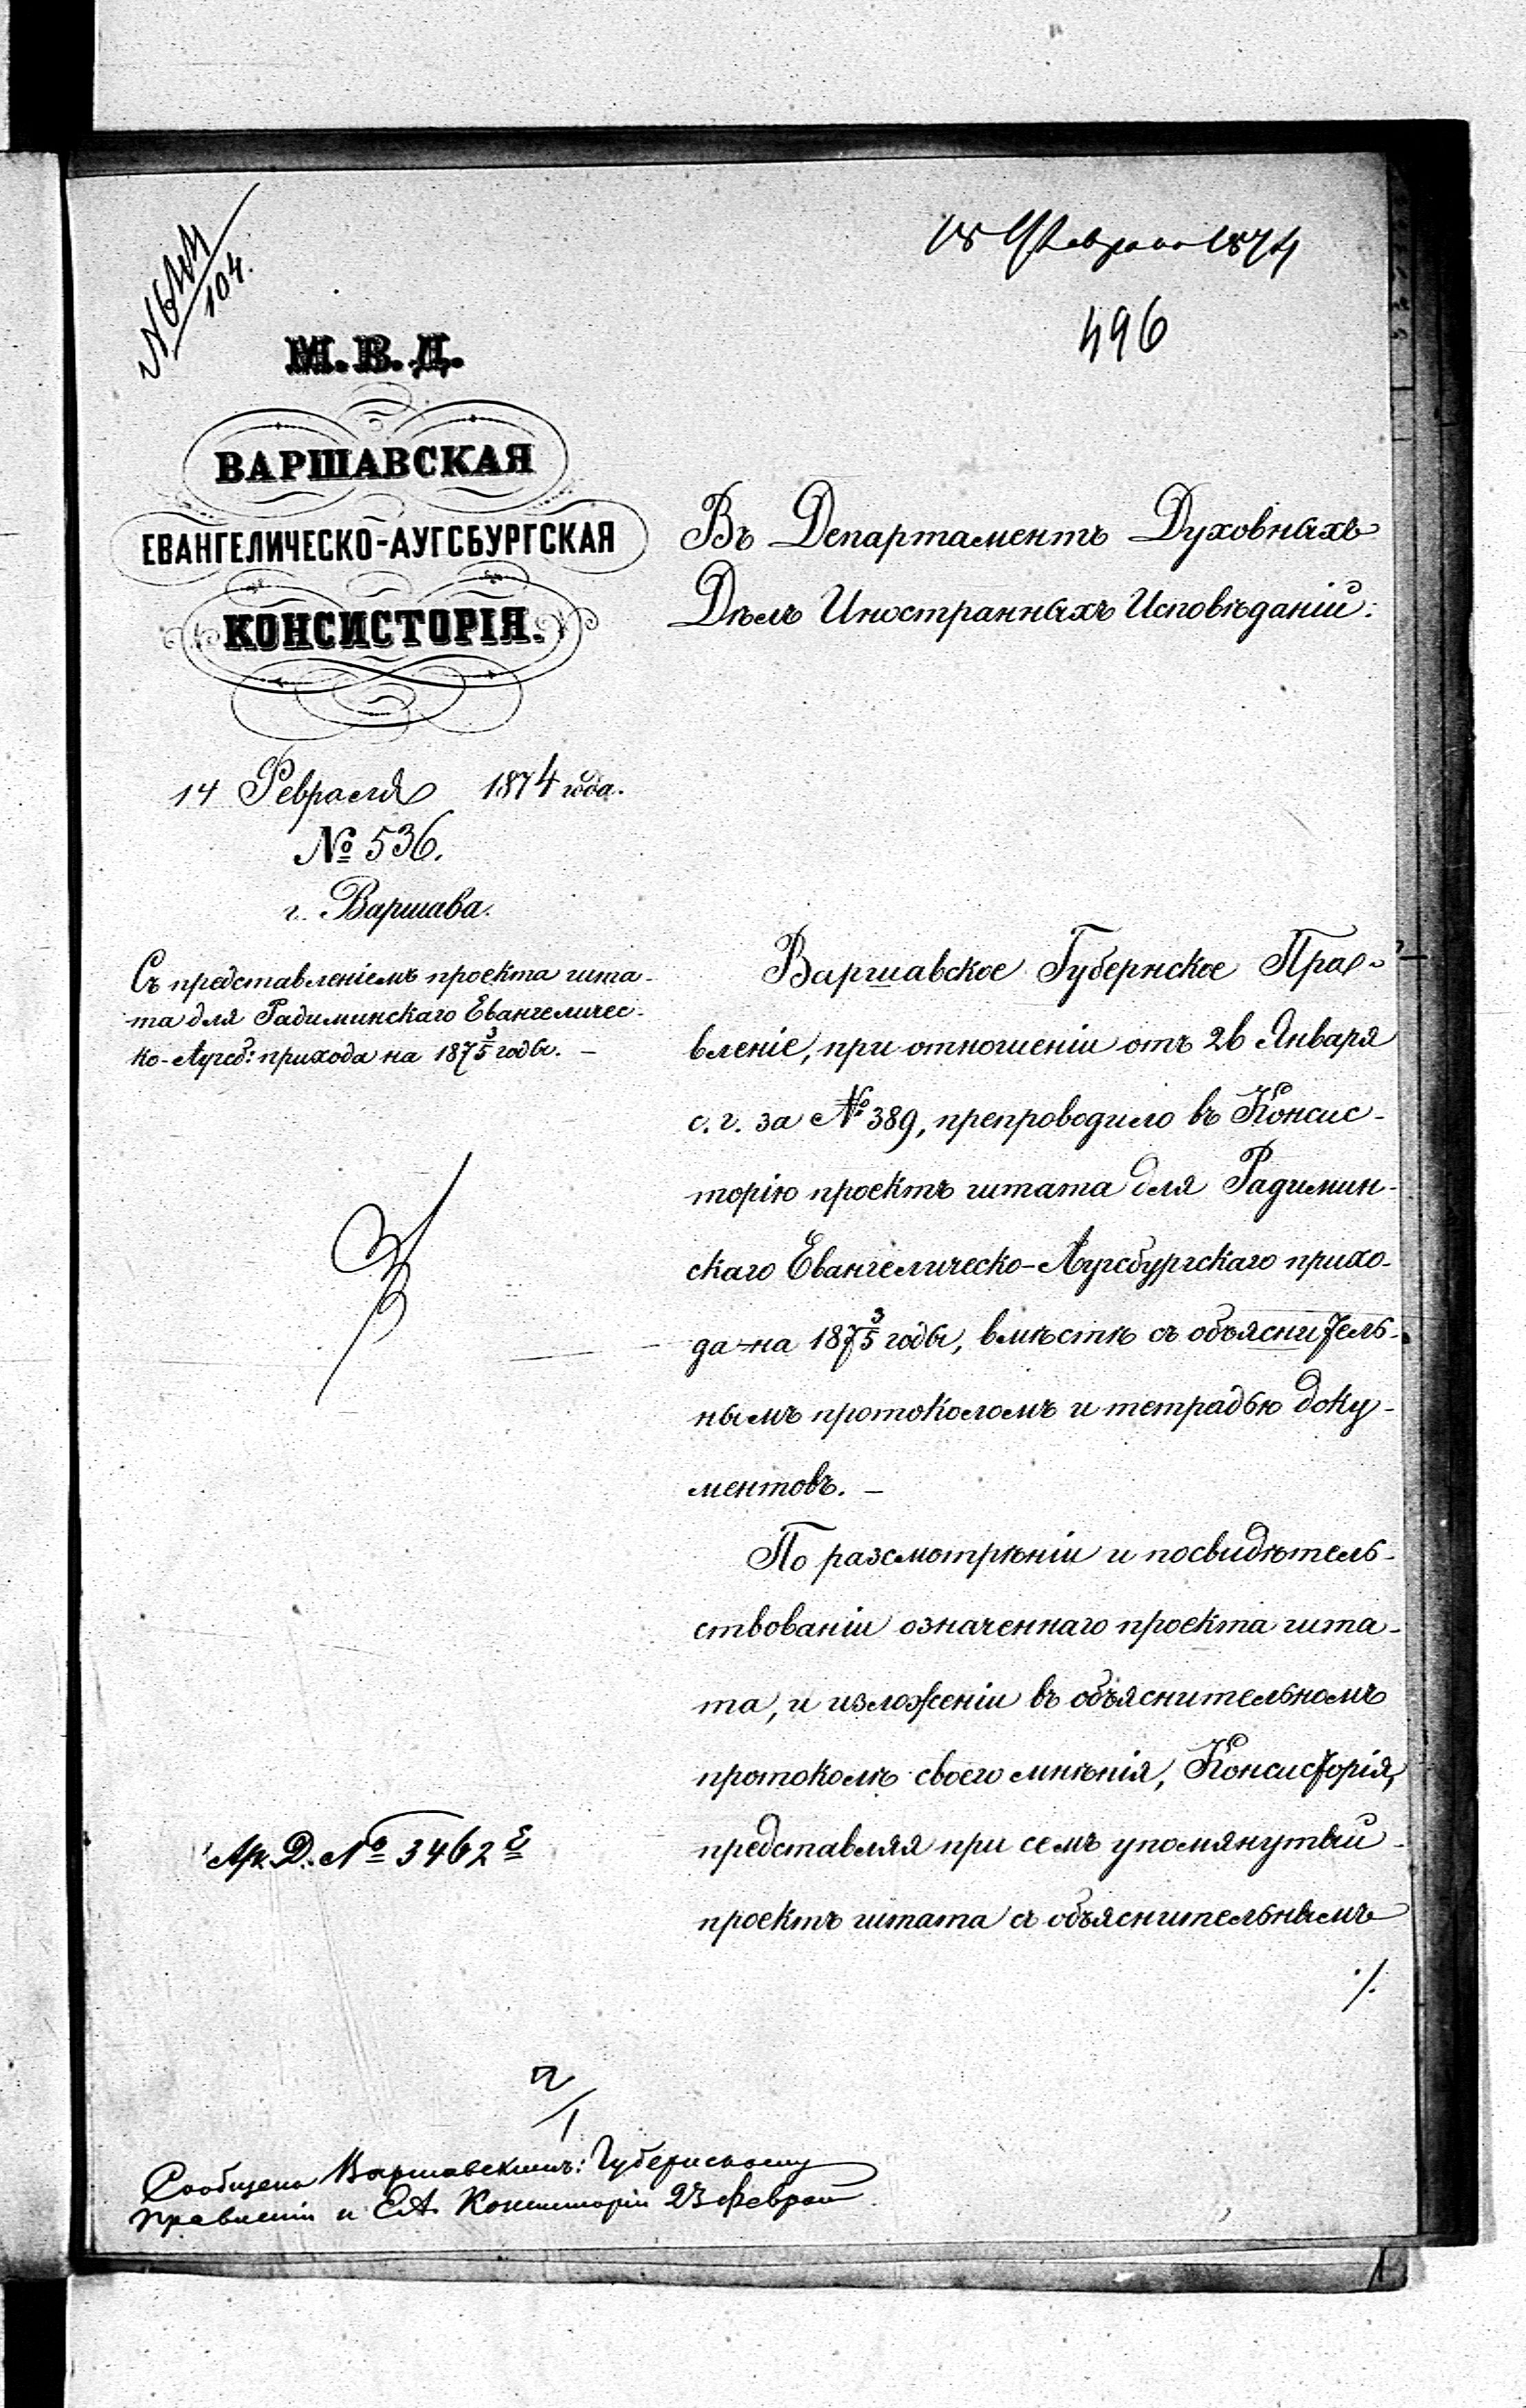 18 Февраля 1874
496
104.
М.В.Д.
ВАРШАВСКАЯ
ЕВАНГЕЛИЧЕСКО-АУГСБУРГСКАЯ
КОНСИСТОРІЯ.
14 Февраля 1874 года.
№ 536.
г. Варшава.
Съ представленіемъ проекта шта-
та для Радиминскаго Евангеличес-
ко-Аугсб: прихода на 187 3/5 годы. –
Ар. Д. № 3462
Въ Департаментъ Духовныхъ
Дѣлъ Иностранныхъ Исповѣданій:
Варшавское Губернское Прав-
вленіе, при отношеніи отъ 26 Января
с. г. за № 389, препроводило въ Консис-
торію проектъ штата для Радимин-
скаго Евангелическо-Аугсбургскаго прихо-
да на 187 3/5 годы, вмѣстѣ съ объяснитель-
нымъ протоколомъ и тетрадью доку-
ментовъ. –
По разсмотрѣніи и посвидѣтель-
ствованіи означеннаго проекта шта-
та, и изложеніи въ объяснительномъ
протоколѣ своего мнѣнія, Консисторія,
представляя при семъ упомянутый
проектъ штата съ объяснительнымъ
./.
Сообщено Варшавскимъ: Губернскому
Правленію и ЕА. Консисторіи 23 Феврал